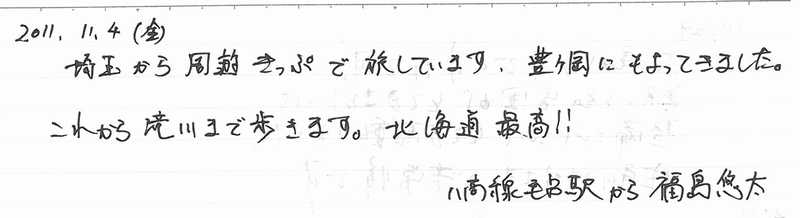 2011. 11. 4 (金)
埼玉から周遊きっぷで旅しています、豊ヶ岡にもよってきました。
これから滝川まで歩きます。北海道 最高!!
八高線毛呂駅から 福島悠太